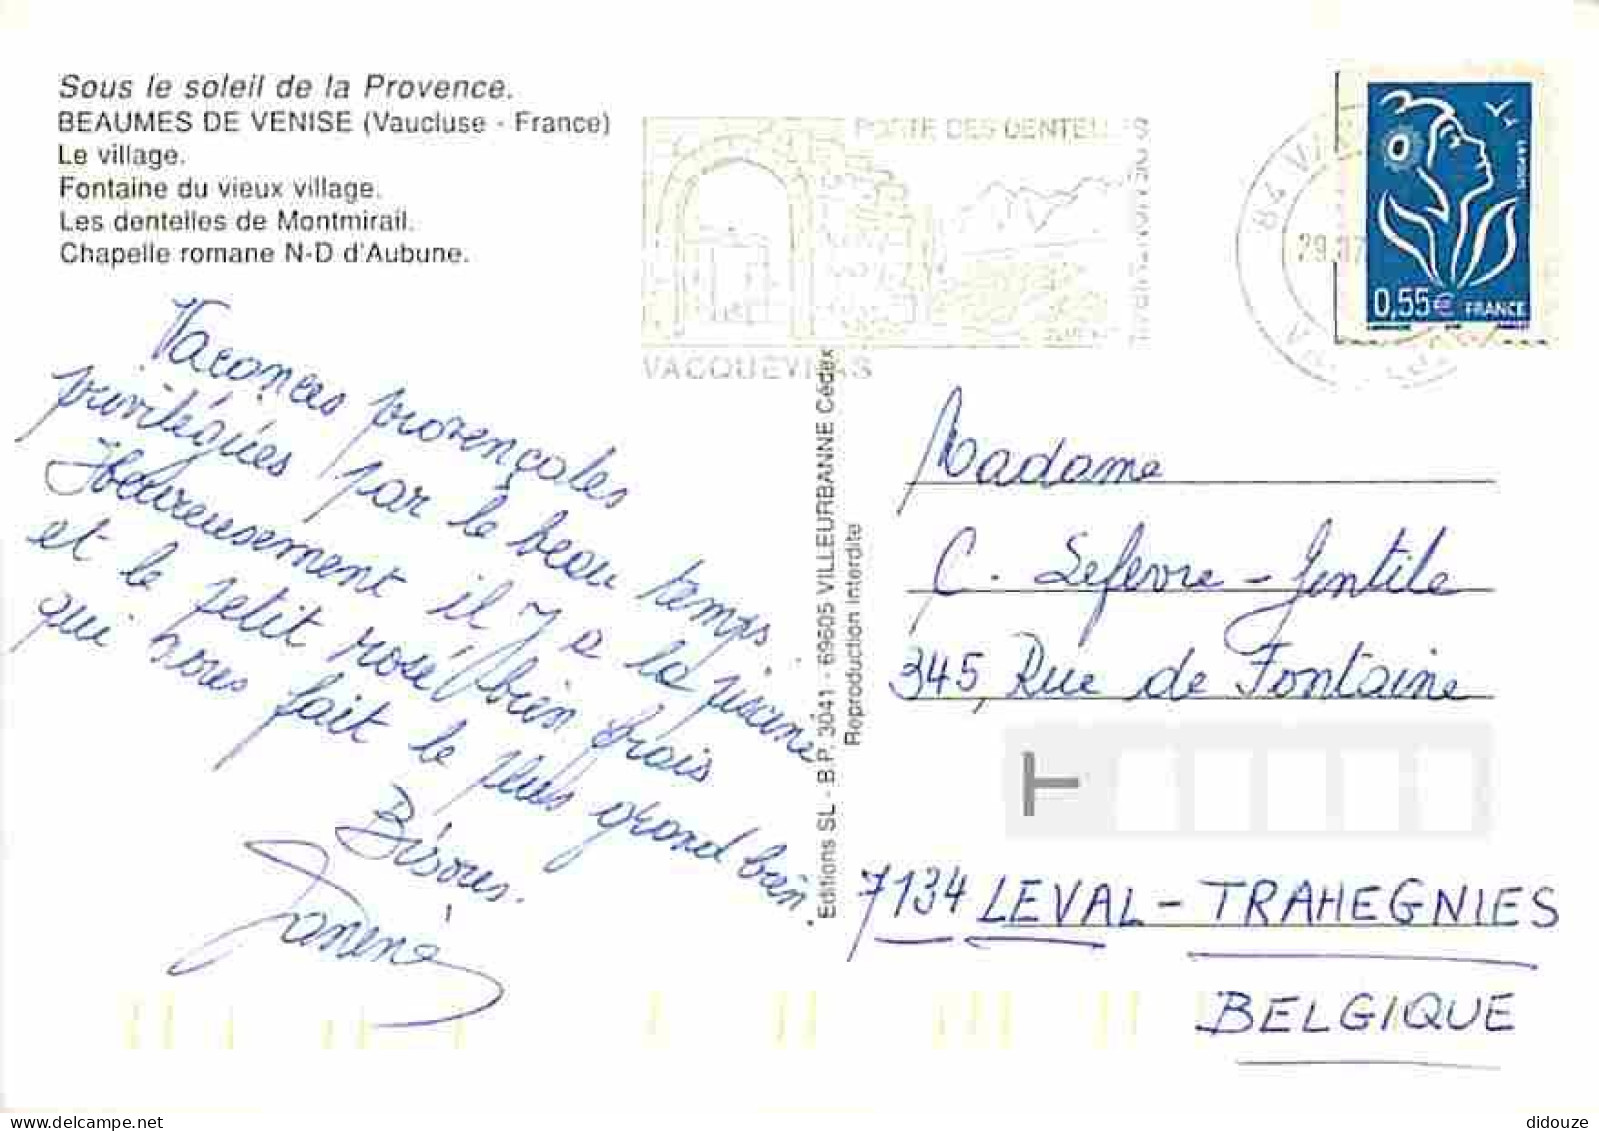 Sous le soleil de la Provence.
BEAUMES DE VENISE (Vaucluse - France)
Le village.
Fontaine du vieux village.
Les dentelles de Montmirail.
Chapelle romane N-D d'Aubune.
DES DENTELLES
VACQUEYRAS
84
29
0,55€ FRANCE
Vacances provençales
privilégiées par le beau temps.
Heureusement il y a la piscine
et le petit rosé bien frais
qui nous fait le plus grand bien.
Bisous.
Editions SL - B.P. 3041 - 69605 VILLEURBANNE Cédex
Reproduction interdite
Madame
C. Lefevre-Gentile
345, Rue de Fontaine
T
7134 LEVAL-TRAHEGNIES
BELGIQUE
didouze